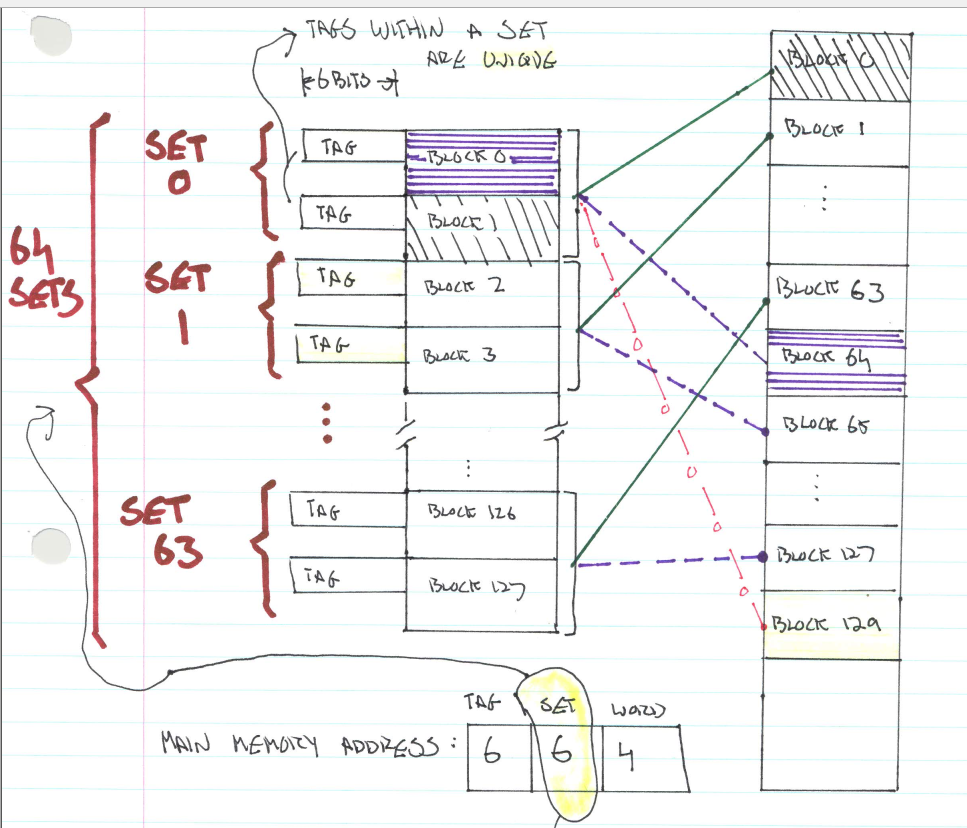 TAGS WITHIN A SET
ARE UNIQUE
6 BITS
64
SETS
SET
0
TAG
BLOCK 0
TAG
BLOCK 1
SET
1
TAG
BLOCK 2
TAG
BLOCK 3
SET
63
TAG
BLOCK 126
TAG
BLOCK 127
BLOCK 0
BLOCK 1
BLOCK 63
BLOCK 64
BLOCK 65
BLOCK 127
BLOCK 129
TAG SET WORD
MAIN MEMORY ADDRESS: 6 6 4